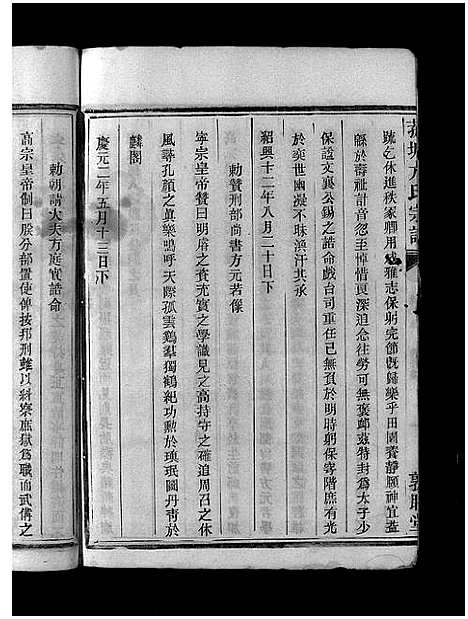 方氏宗譜
疏乞休進秩家卿用 雅志保躬完節既歸樂乎田園養靜頤神宜益
緜於壽祉計音忽至悼惜賔深追念往勞可無褒邺兹特封為太子少
保諡文襄公錫之誥命戲台司重任己無負於明時躬保寄階庶有光
於奕世幽漠不昧渙汗其承
紹興十二年八月二十日下
勅贊刑部尚書方元若像
寧宗皇帝贊曰明睿之資充實之學識見之高持守之確追周召之休
風尋孔顏之眞樂嗚呼天際孤雲鷄羣獨鶴紀功勲於璵珉圖丹青於
麟閣
慶元二年五月十三日下
勅朝請大夫方庭實誥命
高宗皇帝制曰朕分部置使俾按邦刑雖以科察庶獄爲職而武備之
敦睦堂